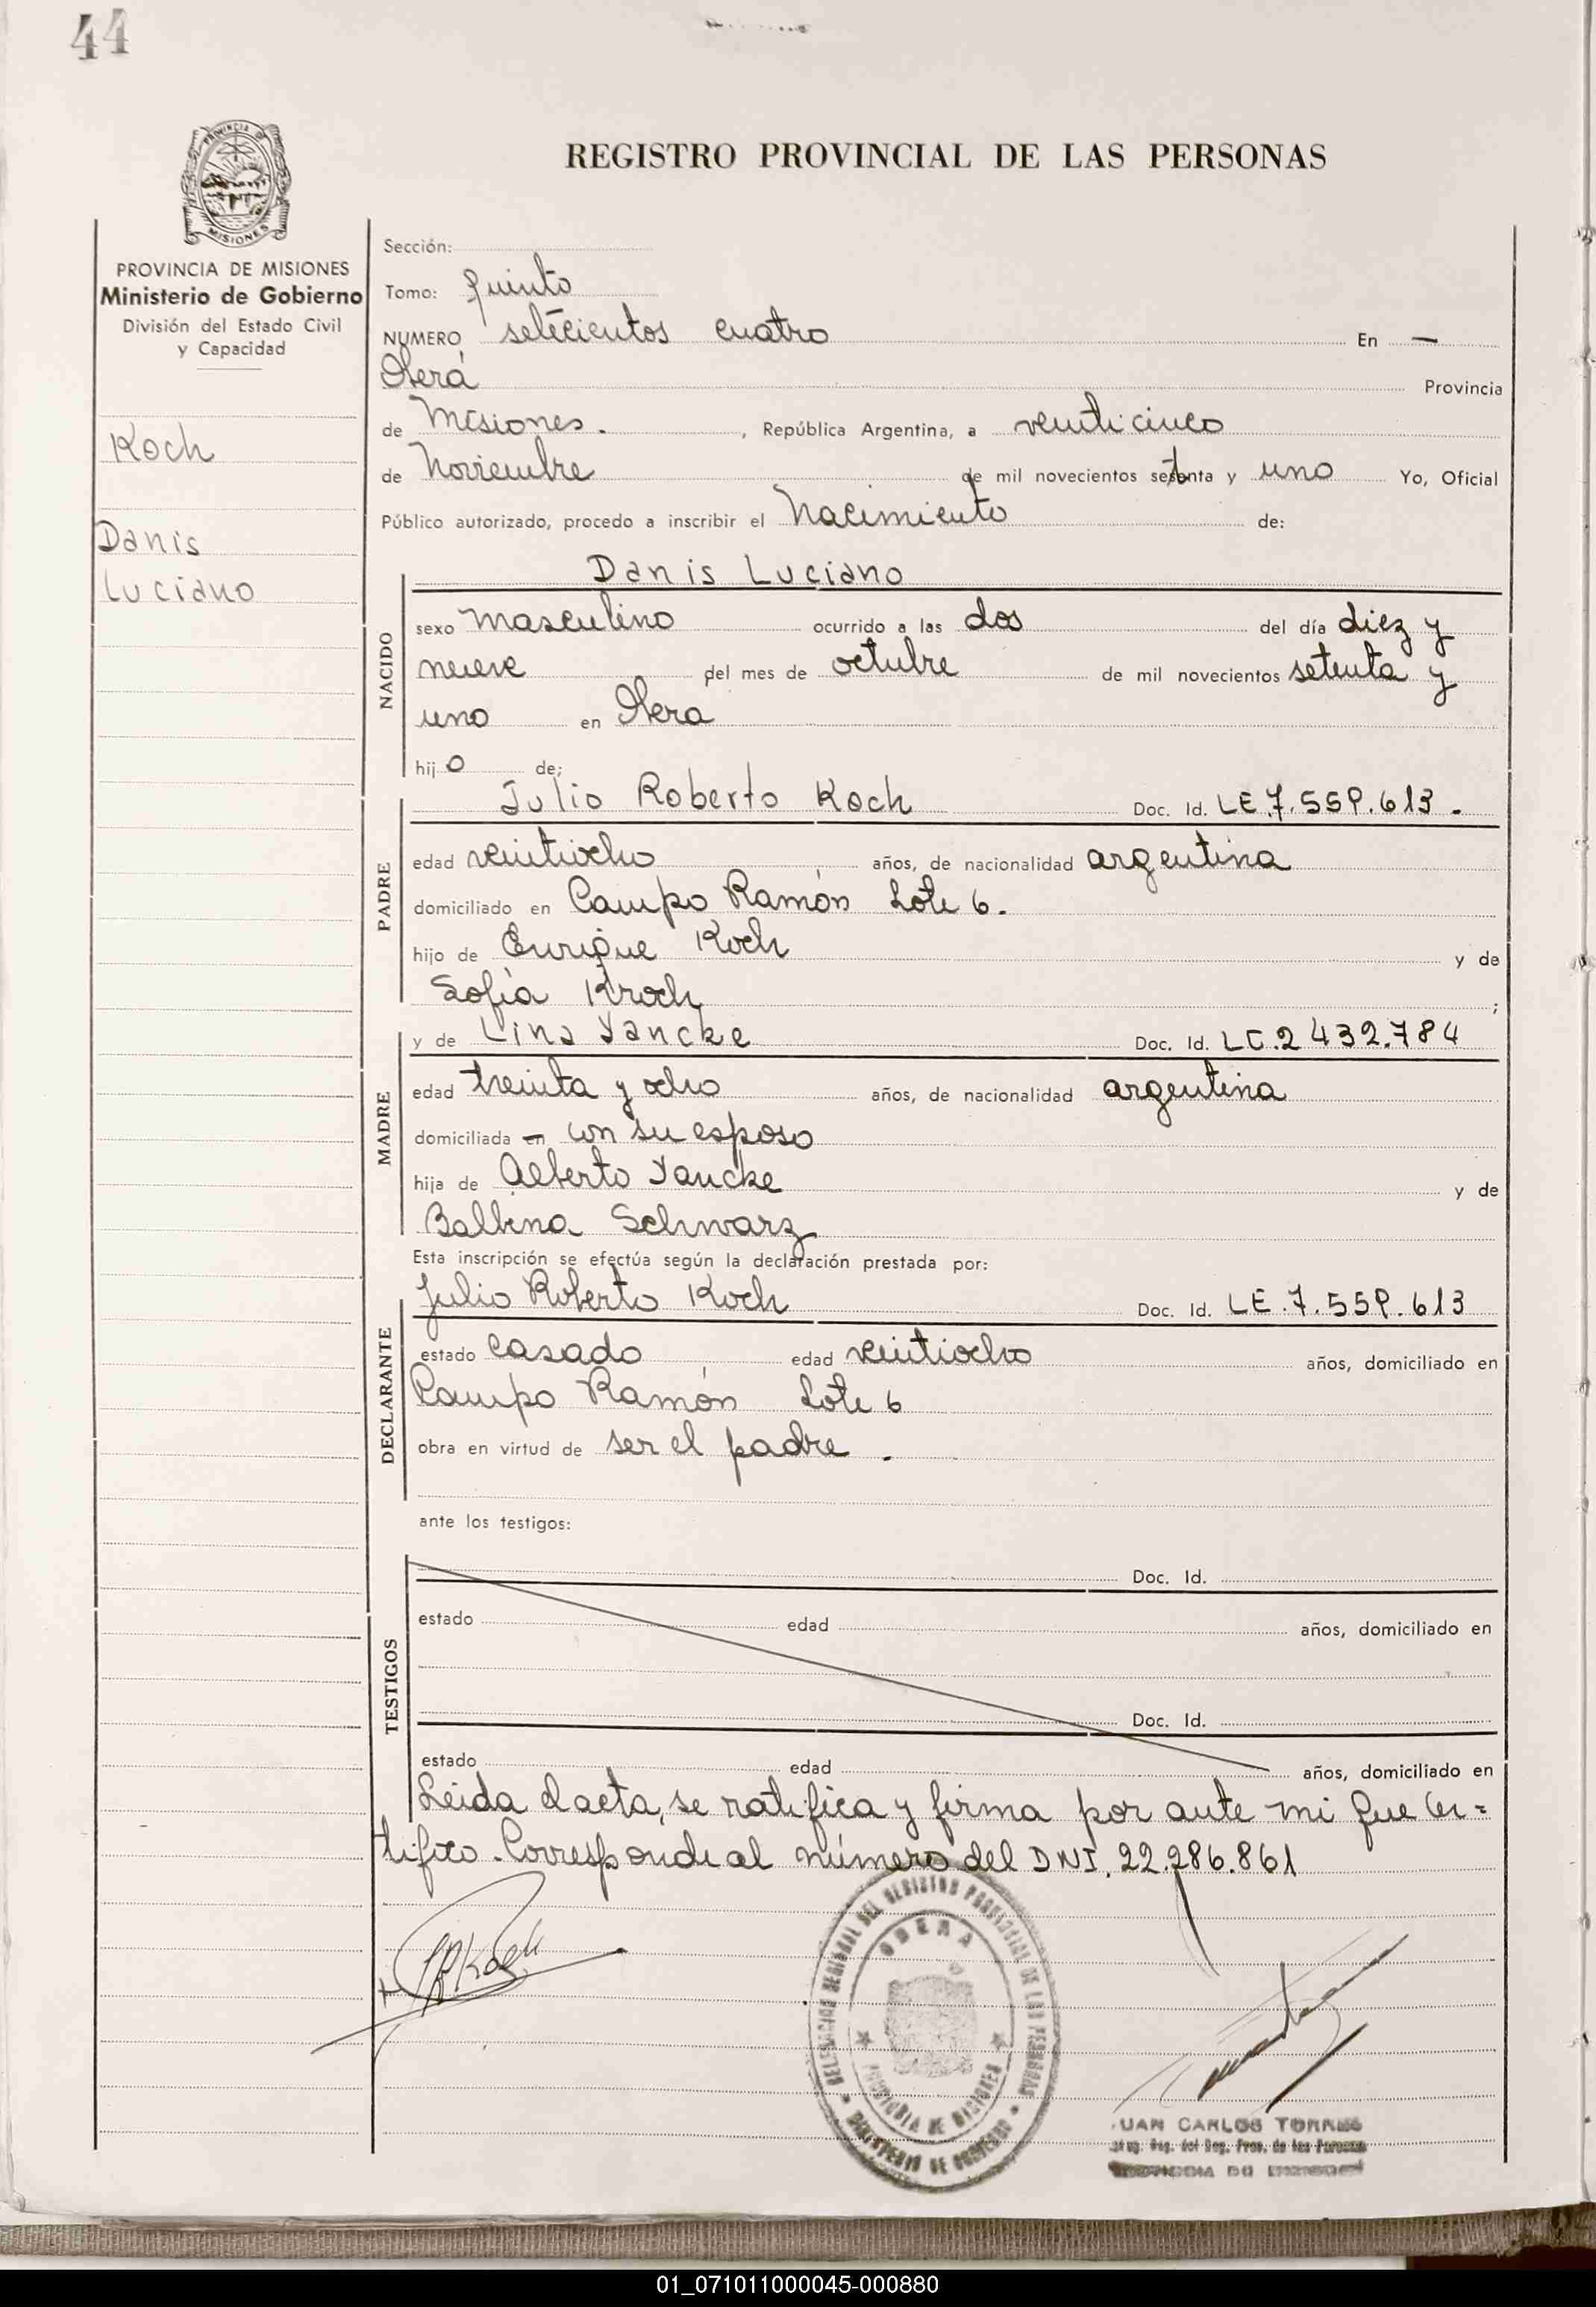 44
REGISTRO PROVINCIAL DE LAS PERSONAS
PROVINCIA DE MISIONES
PROVINCIA DE MISIONES
Ministerio de Gobierno
División del Estado Civil
y Capacidad
Koch
Danis
Luciano
Sección:
Tomo: quinto
NUMERO setecientos cuatro En —
Oberá Provincia
de Misiones. , República Argentina, a veinticinco
de Noviembre de mil novecientos setenta y uno Yo, Oficial
Público autorizado, procedo a inscribir el Nacimiento de:
NACIDO
Danis Luciano
sexo masculino ocurrido a las dos del día diez y
nueve del mes de octubre de mil novecientos setenta y
uno en Oberá
hijo de:
PADRE
Julio Roberto Koch Doc. Id. LE.7.559.613.
edad veintiocho años, de nacionalidad argentina
domiciliado en Campo Ramón Lote 6.
hijo de Enrique Koch y de
Sofía Kroch ;
MADRE
y de Lina Yancke Doc. Id. LC.2 432.784
edad treinta y ocho años, de nacionalidad argentina
domiciliada en con su esposo
hija de Alberto Yancke y de
Balbina Schwarz
Esta inscripción se efectúa según la declaración prestada por:
DECLARANTE
Julio Roberto Koch Doc. Id. LE.7.559.613
estado casado edad veintiocho años, domiciliado en
Campo Ramón Lote 6
obra en virtud de ser el padre.
ante los testigos:
TESTIGOS
Doc. Id.
estado edad años, domiciliado en
Doc. Id.
estado edad años, domiciliado en
Leida el acta, se ratifica y firma por ante mi que cer=
tifico. Corresponde al número del DNI. 22.286.861
JRKoch
DELEGACION REGIONAL DEL REGISTRO PROVINCIAL DE LAS PERSONAS
OBERA
PROVINCIA DE MISIONES
MINISTERIO DE GOBIERNO
JUAN CARLOS TORRES
Reg. del Reg. Prov. de las Personas
PROVINCIA DE MISIONES
01_071011000045-000880